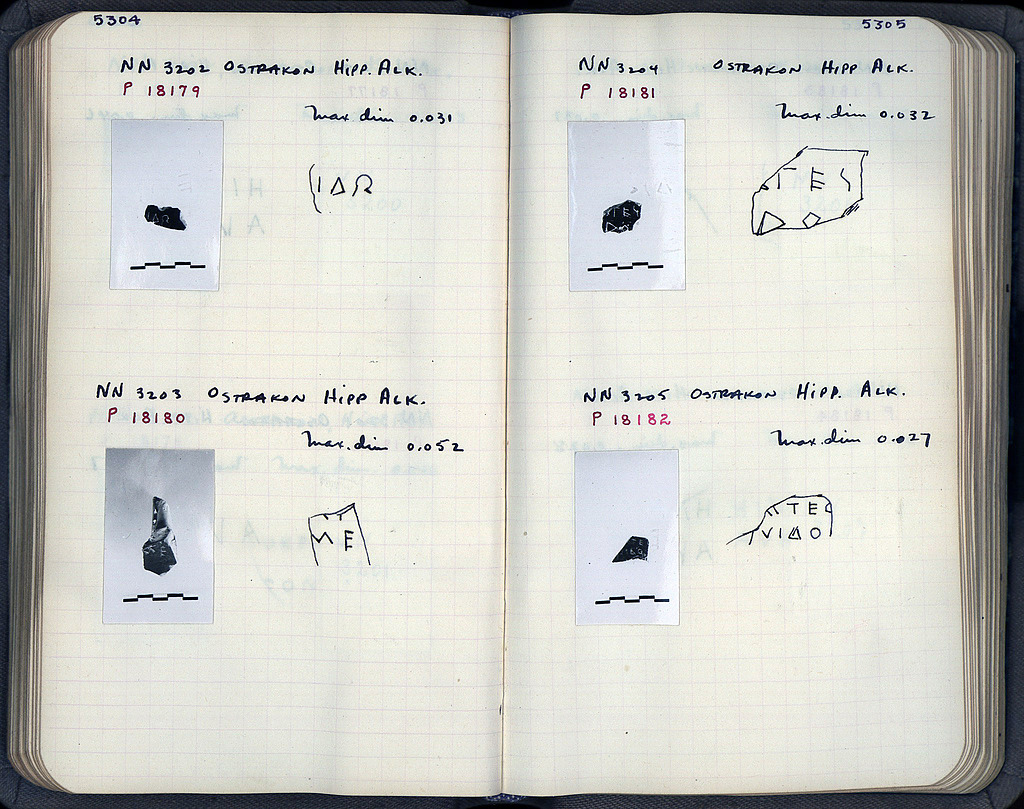 5304
NN 3202 OSTRAKON HIPP. ALK.
P 18179
Max. dim 0.031
ΙΔΩ
NN 3203 OSTRAKON HIPP. ALK.
P 18180
Max. dim 0.052
Ε
5305
NN 3204 OSTRAKON HIPP ALK.
P 18181
Max. dim 0.032
ΤΕΣ
NN 3205 OSTRAKON HIPP. ALK.
P 18182
Max. dim 0.027
ΤΕ
ΙΔΟ